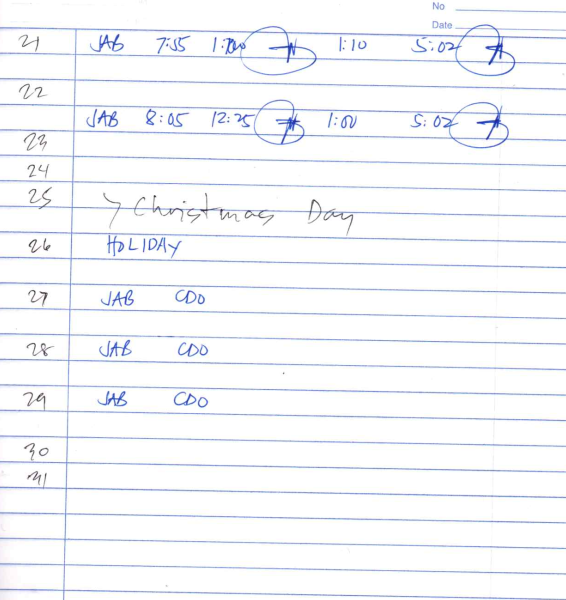 No
Date
21 JAB 7:55 1:00 1:10 5:02
22
JAB 8:05 12:25 1:00 5:02
23
24
25 Christmas Day
26 HOLIDAY
27 JAB CDO
28 JAB CDO
29 JAB CDO
30
31